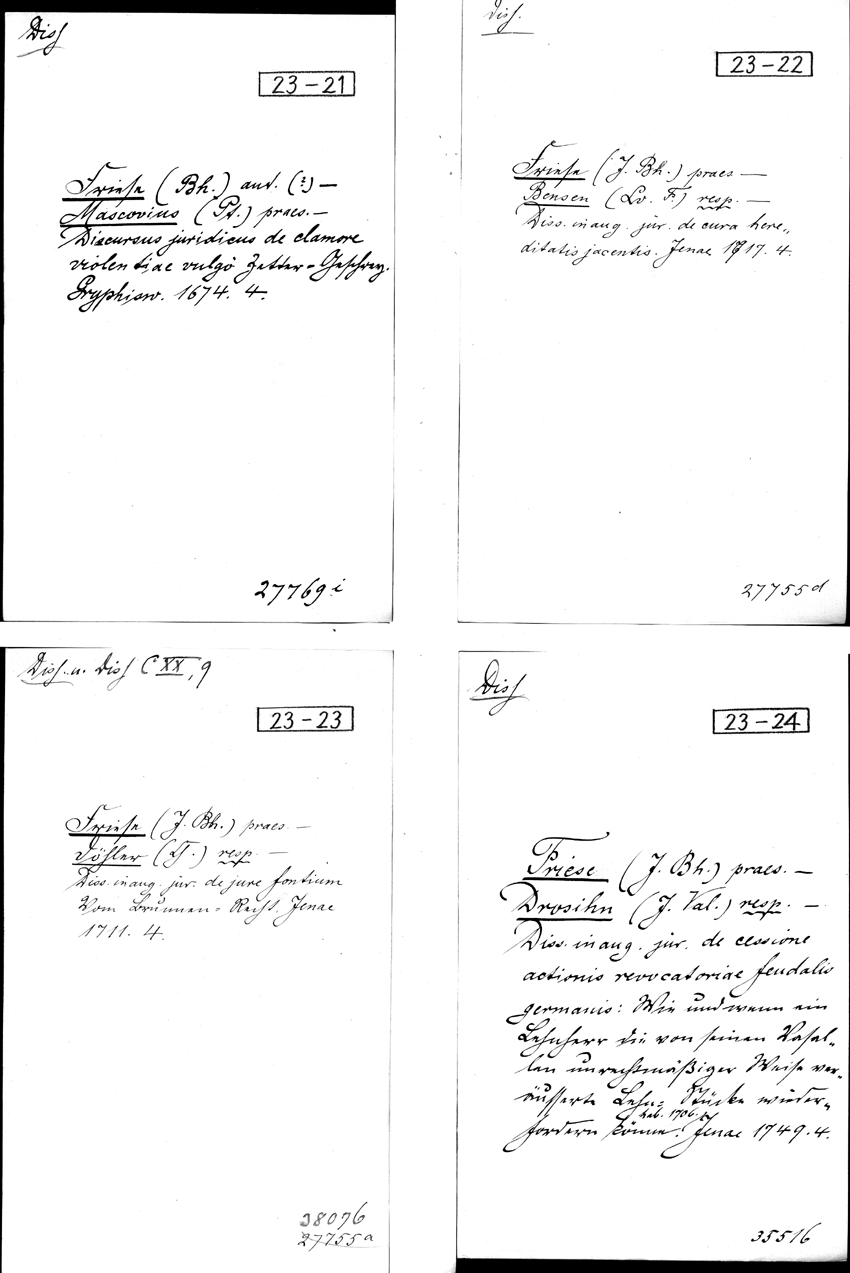 Diss
23-21
Friese (Bh.) aut. (?) —
Mascovius (Pt.) praes. —
Discursus juridicus de clamore
violentiae vulgò Zetter-Geschrey.
Gryphisw. 1674. 4.
27769 i
Diss.
23-22
Friese (J. Bh.) praes —
Bensen (Lv. F.) resp. —
Diss. inaug. jur. de cura here„
ditatis jacentis. Jenae 1717. 4.
27755 d
Diss. u. Diss C XX, 9
23-23
Friese (J. Bh.) praes. —
Döhler (J.) resp. —
Diss. inaug. jur. de jure fontium
Vom Brunnen-Recht. Jenae
1711. 4.
38076
27755 a
Diss
23-24
Friese (J. Bh.) praes. —
Drosihn (J. Val.) resp. —
Diss. inaug. jur. de cessione
actionis revocatoriae feudalis
germanis: Wie und wenn ein
Lehnherr die von seinen Vasal-
len unrechtmäßiger Weise ver-
äusserte Lehn-Stücke wieder-
hab. 1706.
fordern könne. Jenae 1749. 4.
35516